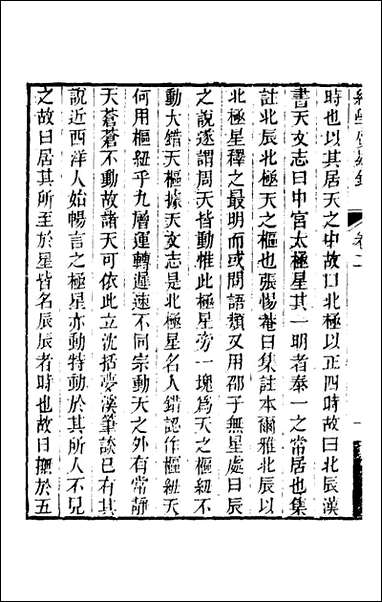 時也以其居天之中故曰北極以正四時故曰北辰漢
書天文志曰中宮太極星其一明者泰一之常居也集
註北辰北極天之樞也張惕菴曰集註本爾雅北辰以
北極星釋之最明而或問語類又用邵子無星處曰辰
之說遂謂周天皆動惟此極星旁一塊為天之樞紐不
動大錯天樞據天文志是北極星名人錯認作樞紐天
何用樞紐乎九層運轉遲速不同宗動天之外有常靜
天蒼蒼不動故諸天可依此立沈括夢溪筆談已有其
說近西洋人始暢言之極星亦動特動於其所人不見
之故曰居其所至於星皆名辰辰者時也故曰撫於五
卷二